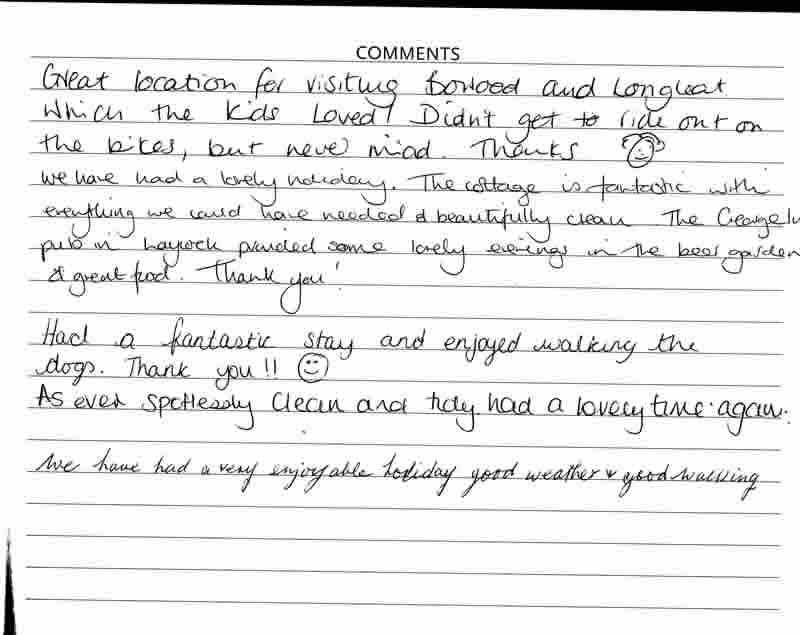 COMMENTS
Great location for visiting Bowood and Longleat
which the kids loved! Didn't get to ride out on
the bikes, but never mind. Thanks
we have had a lovely holiday. The cottage is fantastic with
everything we could have needed & beautifully clean The George In
pub in provided some lovely evenings in the beer garden
& great food. Thank you!
Had a fantastic stay and enjoyed walking the
dogs. Thank you!!
As ever spotlessly clean and tidy had a lovely time again.
We have had a very enjoyable holiday good weather & good walking